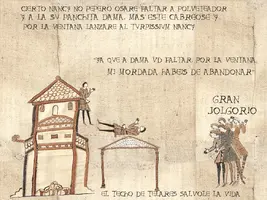 CERTO NANCY NO PEPERO OSARE FALTAR A POLVETEADOR
Y A LA SV PANCHITA DAMA. MAS ESTE CABREOSE Y
POR LA VENTANA LANZARE AL TVRPISSIMVM NANCY
"YA QVE A DAMA VD FALTAR. POR LA VENTANA,
MI MORDADA HABEIS DE ABANDONAR"
GRAN
JOLGORIO
EL TECHO DE TELARES SALVOLE LA VIDA